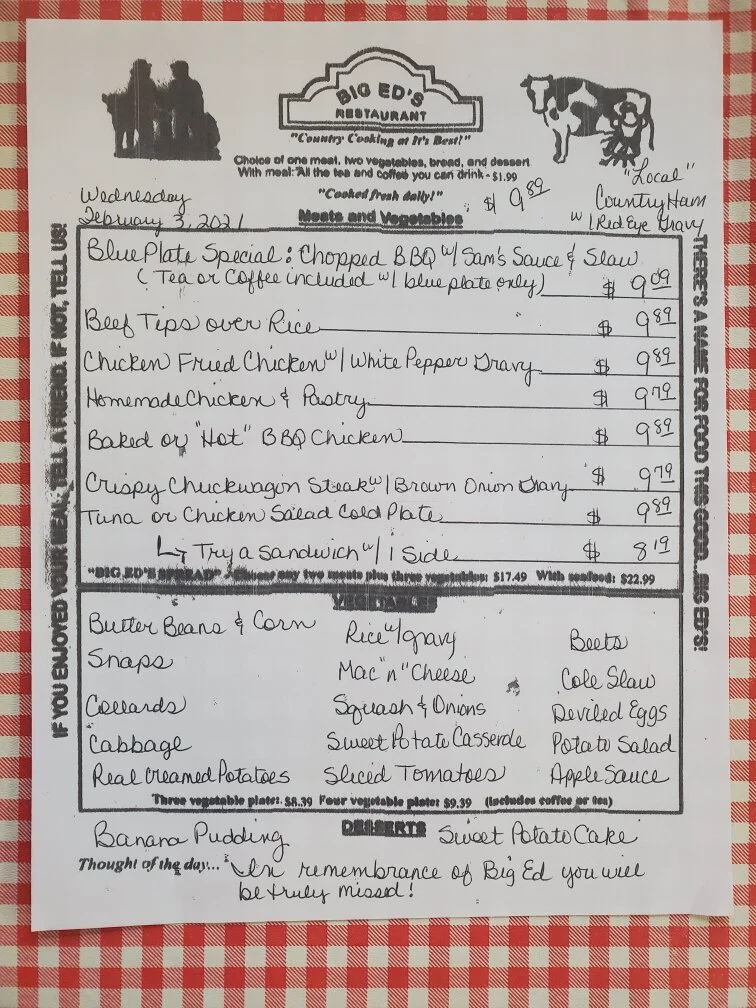 BIG ED'S
RESTAURANT
"Country Cooking at It's Best!"
Choice of one meat, two vegetables, bread, and dessert
With meal: All the tea and coffee you can drink - $1.99
"Cooked fresh daily!"
$ 9.89
"Local"
Country Ham
w/ Red Eye Gravy
Wednesday
February 3, 2021
Meats and Vegetables
Blue Plate Special: Chopped BBQ w/ Sam's Sauce & Slaw
(Tea or Coffee included w/ blue plate only) $ 9.09
Beef Tips over Rice $ 9.89
Chicken Fried Chicken w/ White Pepper Gravy $ 9.89
Homemade Chicken & Pastry $ 9.79
Baked or "Hot" BBQ Chicken $ 9.89
Crispy Chuckwagon Steak w/ Brown Onion Gravy $ 9.79
Tuna or Chicken Salad Cold Plate $ 9.89
↳ Try a Sandwich w/ 1 Side $ 8.19
"BIG ED'S SPREAD" - Choose any two meats plus three vegetables: $17.49 With seafood: $22.99
VEGETABLES
Butter Beans & Corn
Snaps
Collards
Cabbage
Real Creamed Potatoes
Rice w/ gravy
Mac "n" Cheese
Squash & Onions
Sweet Potato Casserole
Sliced Tomatoes
Beets
Cole Slaw
Deviled Eggs
Potato Salad
Apple Sauce
Three vegetable plate: $8.39 Four vegetable plate: $9.39 (Includes coffee or tea)
DESSERTS
Banana Pudding
Sweet Potato Cake
Thought of the day... "In remembrance of Big Ed you will
be truly missed!
IF YOU ENJOYED YOUR MEAL, TELL A FRIEND. IF NOT, TELL US!
THERE'S A NAME FOR FOOD THIS GOOD...BIG ED'S!